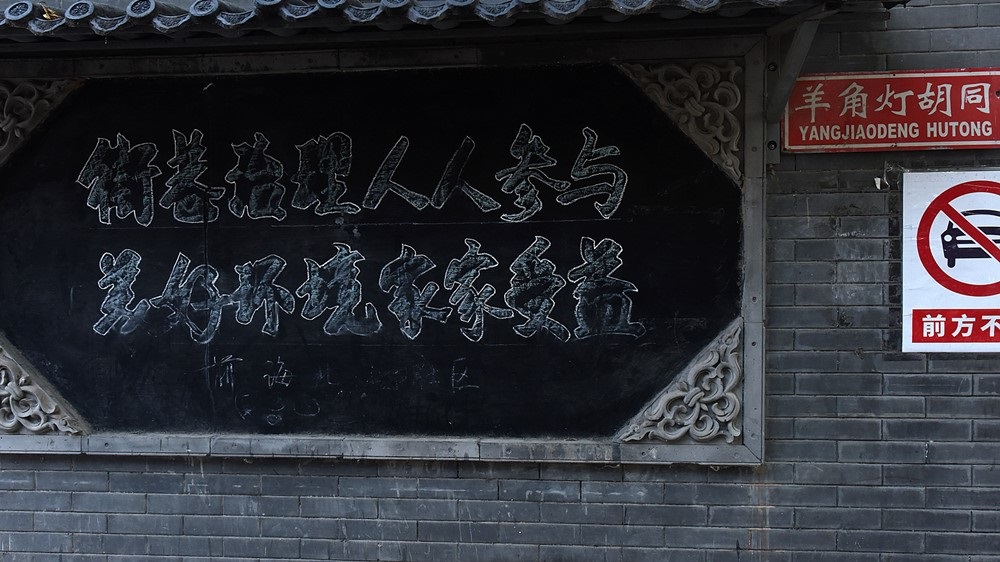 街巷治理人人参与
美好环境家家受益
前海
区
羊角灯胡同
YANGJIAODENG HUTONG
前方不